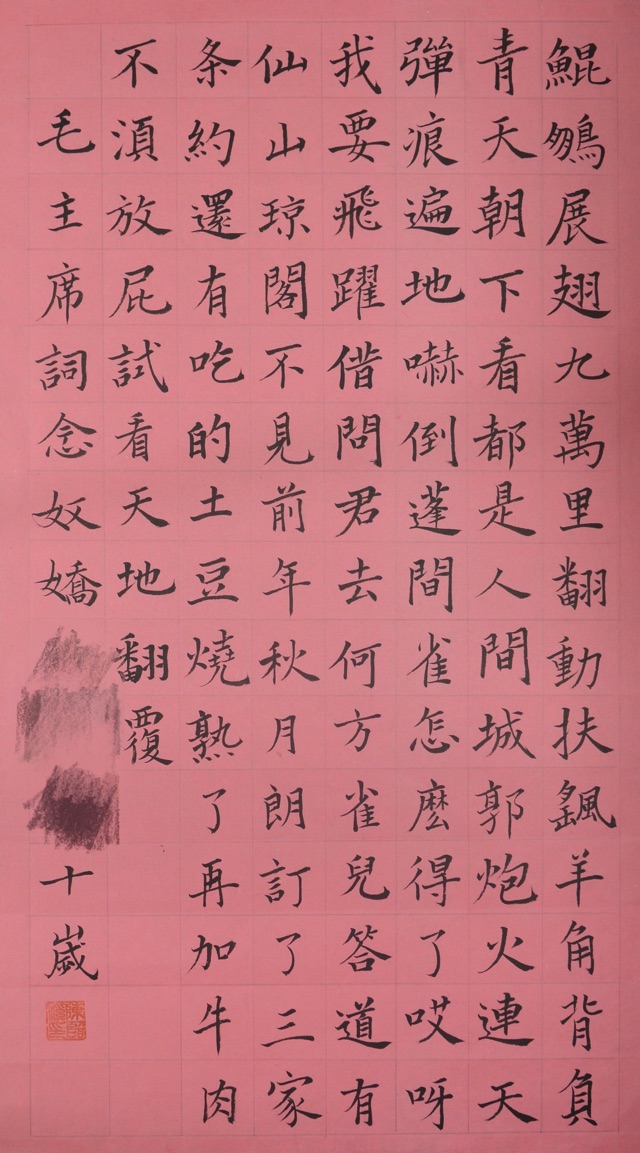 鯤鵬展翅九萬里翻動扶颻羊角背負
青天朝下看都是人間城郭炮火連天
彈痕遍地嚇倒蓬間雀怎麽得了哎呀
我要飛躍借問君去何方雀兒答道有
仙山琼閣不見前年秋月朗訂了三家
条約還有吃的土豆燒熟了再加牛肉
不湏放屁試看天地翻覆
毛主席詞念奴嬌 十歲